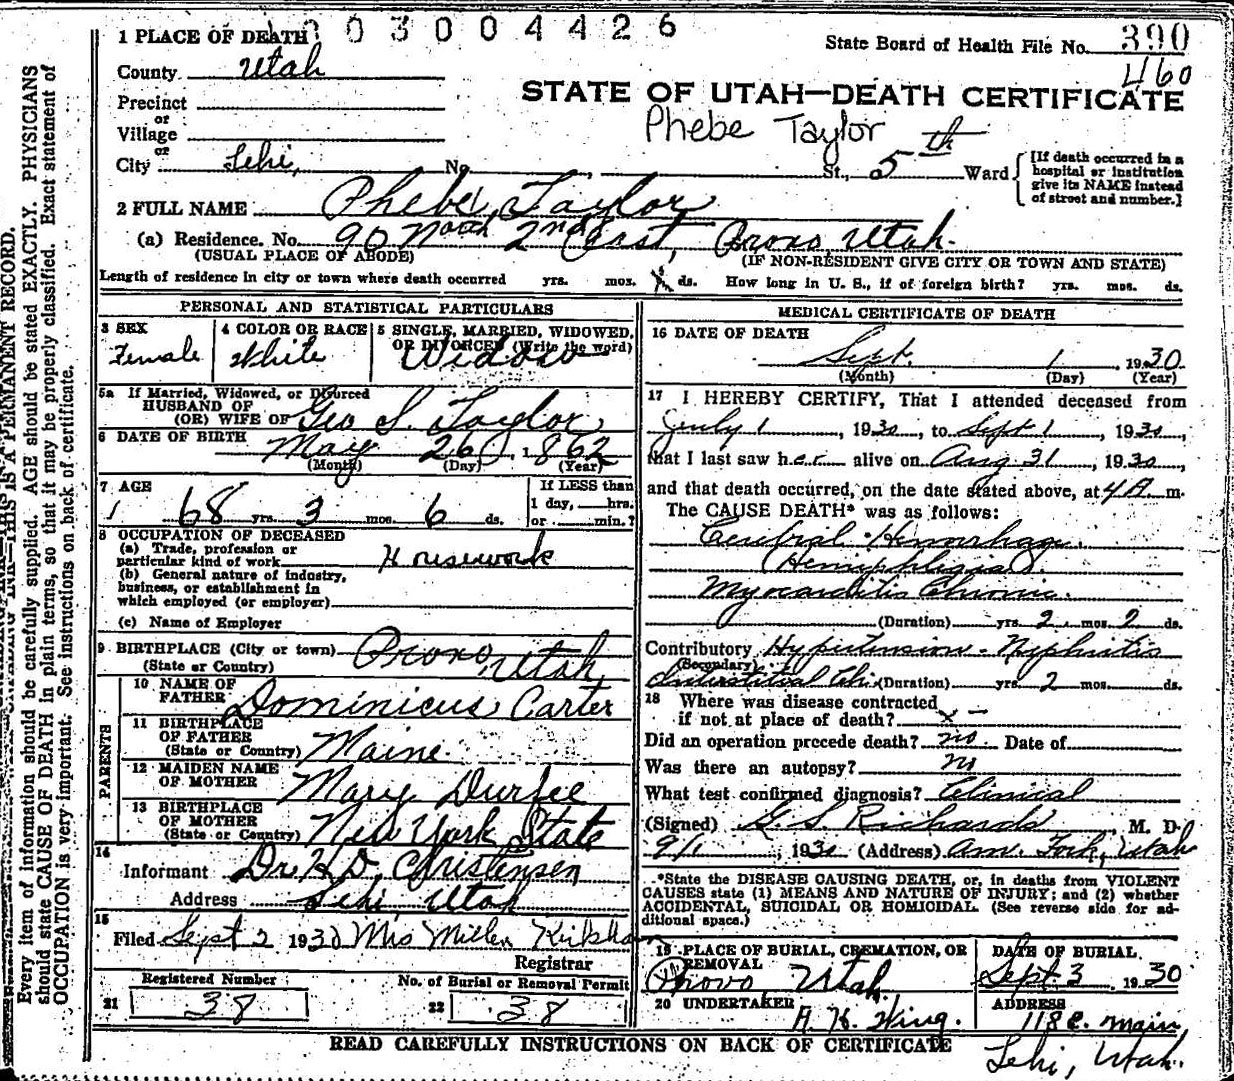 1 PLACE OF DEATH 3 0 3 0 0 4 4 2 6
State Board of Health File No. 390
County Utah
460
STATE OF UTAH—DEATH CERTIFICATE
Precinct
or
Village
Phebe Taylor
or
City Lehi, No. St., 5th Ward
[If death occurred in a hospital or institution give its NAME instead of street and number.]
2 FULL NAME Phebe Taylor
(a) Residence. No. 90 North 2nd East, Provo, Utah.
(USUAL PLACE OF ABODE) (IF NON-RESIDENT GIVE CITY OR TOWN AND STATE)
Length of residence in city or town where death occurred yrs. mos. ds. How long in U. S., if of foreign birth? yrs. mos. ds.
PERSONAL AND STATISTICAL PARTICULARS
3 SEX Female
4 COLOR OR RACE White
5 SINGLE, MARRIED, WIDOWED, OR DIVORCED (Write the word) Widow
5a If Married, Widowed, or Divorced
HUSBAND OF
(OR) WIFE OF Geo S. Taylor
6 DATE OF BIRTH May 26 1862
(Month) (Day) (Year)
7 AGE 68 yrs. 3 mos. 6 ds.
If LESS than
1 day, hrs.
or min.?
8 OCCUPATION OF DECEASED
(a) Trade, profession or
particular kind of work Housework
(b) General nature of industry,
business, or establishment in
which employed (or employer)
(c) Name of Employer
9 BIRTHPLACE (City or town) Provo, Utah
(State or Country)
PARENTS
10 NAME OF
FATHER Dominicus Carter
11 BIRTHPLACE
OF FATHER
(State or Country) Maine
12 MAIDEN NAME
OF MOTHER Mary Durfee
13 BIRTHPLACE
OF MOTHER
(State or Country) New York State
14
Informant Dr. H. D. Christensen
Address Lehi, Utah
15
Filed Sept 2 1930 Mrs Millen Kirkha
Registrar
Registered Number
21 38
No. of Burial or Removal Permit
22 38
MEDICAL CERTIFICATE OF DEATH
16 DATE OF DEATH
Sept. 1, 1930
(Month) (Day) (Year)
17 I HEREBY CERTIFY, That I attended deceased from
July 1, 1930, to Sept 1, 1930,
that I last saw her alive on Aug 31, 1930,
and that death occurred, on the date stated above, at 4 A m.
The CAUSE DEATH* was as follows:
Cerebral Hemorrhage
(Hemiphlegia).
Myocarditis Chronic.
(Duration) yrs. 2 mos. 2 ds.
Contributory Hypertension - Nephritis
(Secondary)
Interstitial Ch. (Duration) yrs. 2 mos. ds.
18 Where was disease contracted
if not at place of death? x —
Did an operation precede death? no. Date of
Was there an autopsy? no
What test confirmed diagnosis? Clinical
(Signed) G. S. Richards, M. D.
9/1, 1930 (Address) Am. Fork, Utah
*State the DISEASE CAUSING DEATH, or, in deaths from VIOLENT
CAUSES state (1) MEANS AND NATURE OF INJURY; and (2) whether
ACCIDENTAL, SUICIDAL OR HOMICIDAL. (See reverse side for ad-
ditional space.)
19 PLACE OF BURIAL, CREMATION, OR
REMOVAL
Provo Utah.
DATE OF BURIAL
Sept. 3 1930
20 UNDERTAKER
A. H. King.
ADDRESS
118 E. Main,
Lehi, Utah.
READ CAREFULLY INSTRUCTIONS ON BACK OF CERTIFICATE
THIS IS A PERMANENT RECORD.
Every item of information should be carefully supplied. AGE should be stated EXACTLY. PHYSICIANS
should state CAUSE OF DEATH in plain terms, so that it may be properly classified. Exact statement of
OCCUPATION is very important. See instructions on back of certificate.